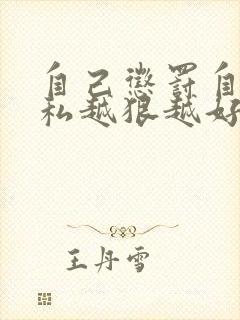 自己惩罚自
私越狠越好
王丹雪